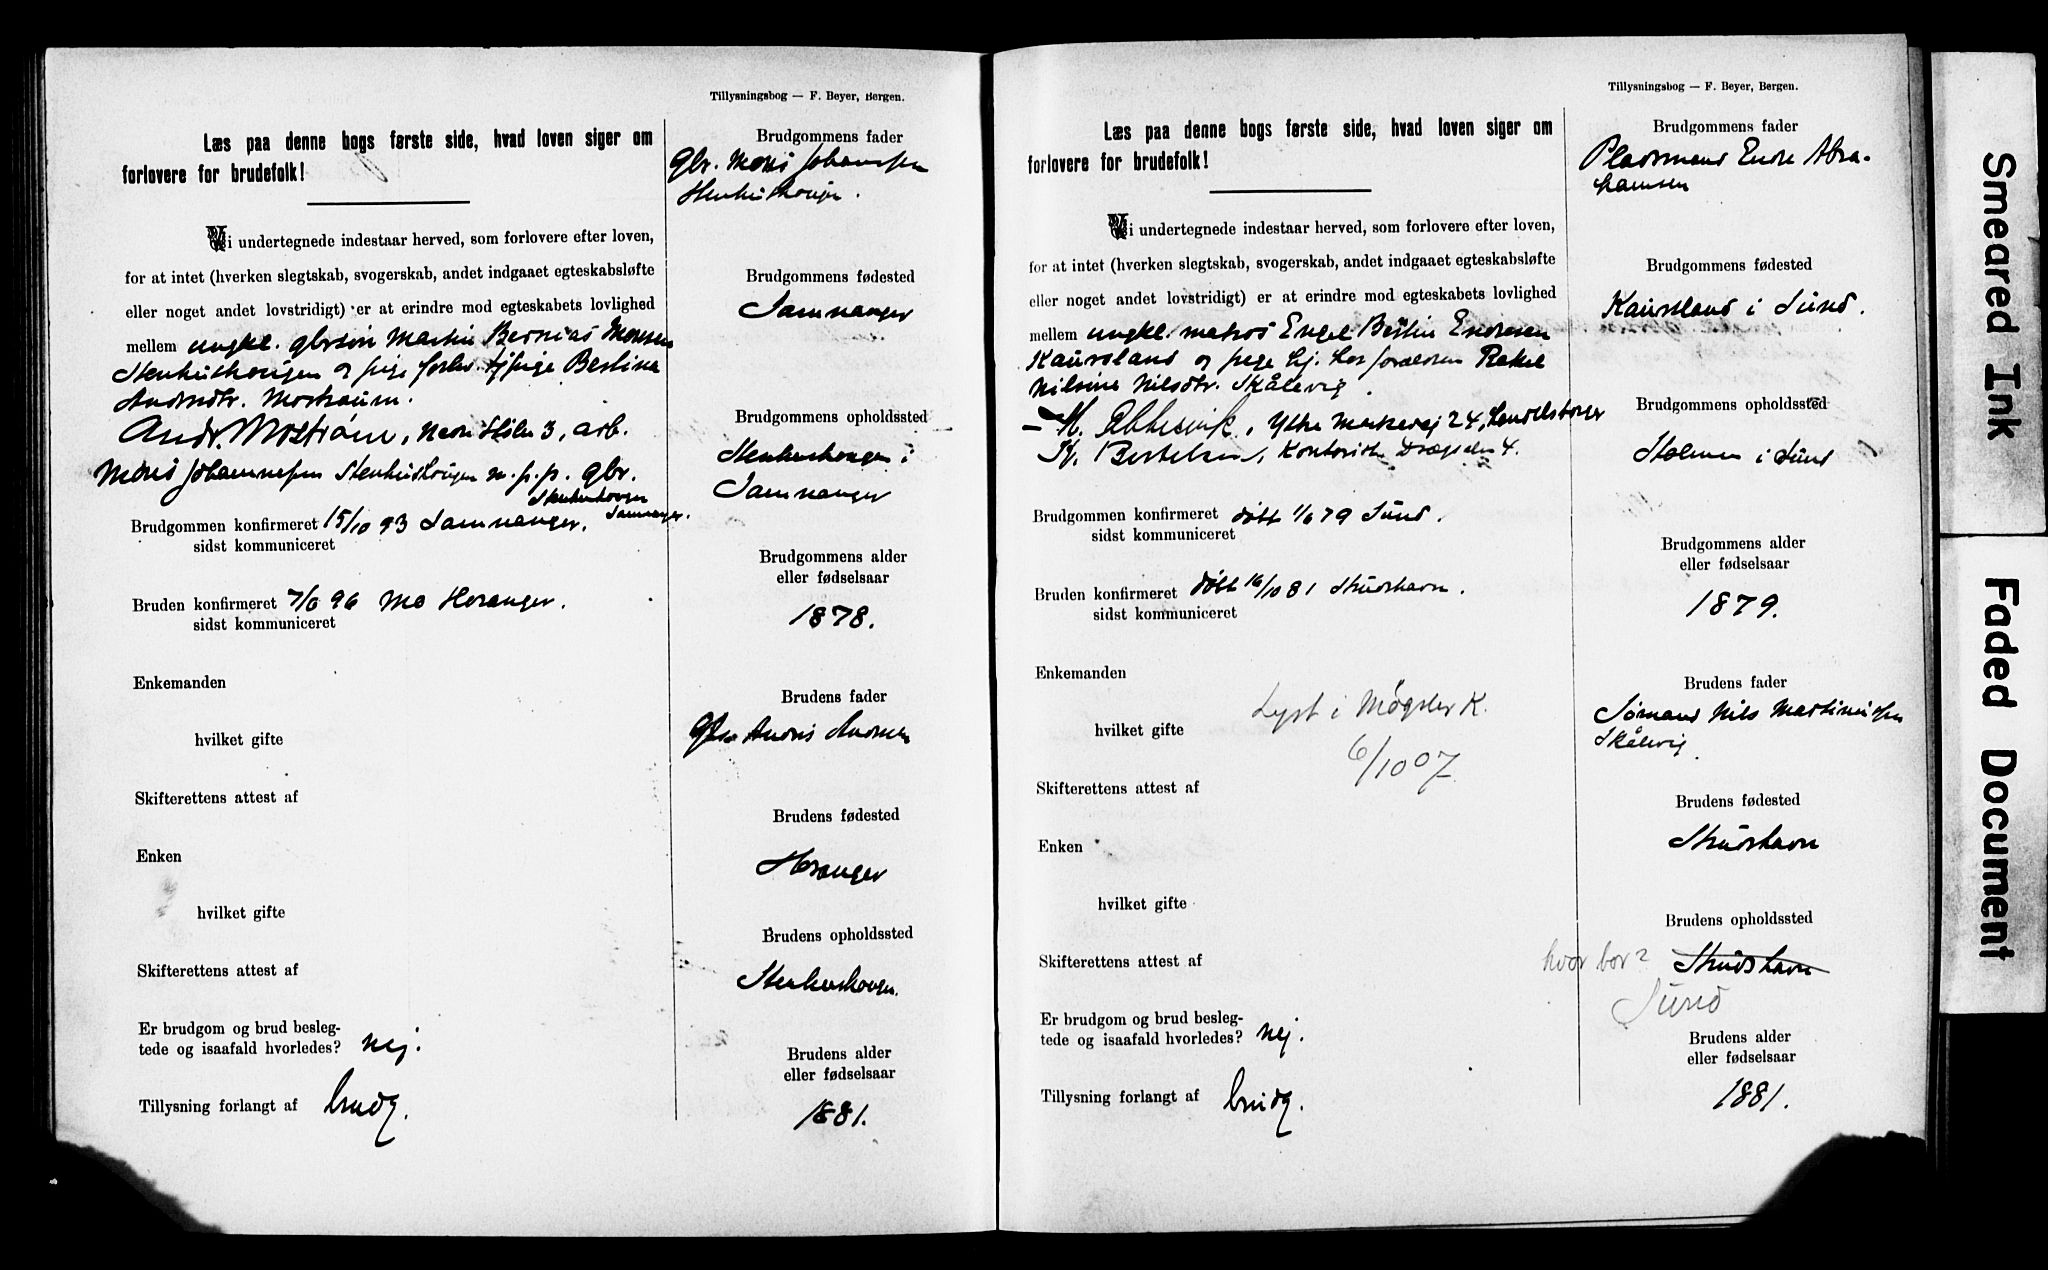 Tillysningsbog — F. Beyer, Bergen.
Læs paa denne bogs første side, hvad loven siger om
forlovere for brudefolk!
Vi undertegnede indestaar herved, som forlovere efter loven,
for at intet (hverken slegtskab, svogerskab, andet indgaaet egteskabsløfte
eller noget andet lovstridigt) er at erindre mod egteskabets lovlighed
mellem ungkl. gbrsøn Martin Bernias Monsen
Stenhushougen og pige forhv. tj. pige Bertine
Andr. Mostrøm, 3, arb.
Mons Johannessen Stenhushougen m. p. p. gbr.
Stenhushougen
Samnanger.
Brudgommen konfirmeret 15/10 93 Samnanger.
sidst kommuniceret
Bruden konfirmeret 7/6 96 Mo Hosanger.
sidst kommuniceret
Enkemanden
hvilket gifte
Skifterettens attest af
Enken
hvilket gifte
Skifterettens attest af
Er brudgom og brud besleg-
tede og isaafald hvorledes? nej.
Tillysning forlangt af brudg.
Brudgommens fader
Gbr. Mons Johannessen
Stenhushougen.
Brudgommens fødested
Samnanger
Brudgommens opholdssted
Stenhushougen i
Samnanger
Brudgommens alder
eller fødselsaar
1878.
Brudens fader
Gbr. Anders Andersen
Brudens fødested
Hosanger
Brudens opholdssted
Stenhushougen.
Brudens alder
eller fødselsaar
1881.
Tillysningsbog — F. Beyer, Bergen.
Læs paa denne bogs første side, hvad loven siger om
forlovere for brudefolk!
Vi undertegnede indestaar herved, som forlovere efter loven,
for at intet (hverken slegtskab, svogerskab, andet indgaaet egteskabsløfte
eller noget andet lovstridigt) er at erindre mod egteskabets lovlighed
mellem ungkl. matros Engel Bertin Endresen
Kaursland og pige hj. hos forældren Rakel
Nilsine Nilsdtr. Skålevig.
M. Ytre Markevej 24,
Bertelsen, Kontorist Drægden 4.
Brudgommen konfirmeret døbt 1/6 79 Sund.
sidst kommuniceret
Bruden konfirmeret døbt 16/10 81 Strudshavn.
sidst kommuniceret
Enkemanden
hvilket gifte
Lyst i Møgster K.
6/10 07
Skifterettens attest af
Enken
hvilket gifte
Skifterettens attest af
Er brudgom og brud besleg-
tede og isaafald hvorledes? nej.
Tillysning forlangt af brudg.
Brudgommens fader
Pladsmand Endre Abra-
hamsen
Brudgommens fødested
Kaursland i Sund.
Brudgommens opholdssted
Stolmen i Sund
Brudgommens alder
eller fødselsaar
1879.
Brudens fader
Sømand Nils Martinussen
Skålevig
Brudens fødested
Strudshavn
Brudens opholdssted
hvor bor? Strudshavn
Sund
Brudens alder
eller fødselsaar
1881.
Smeared Ink
Faded Document